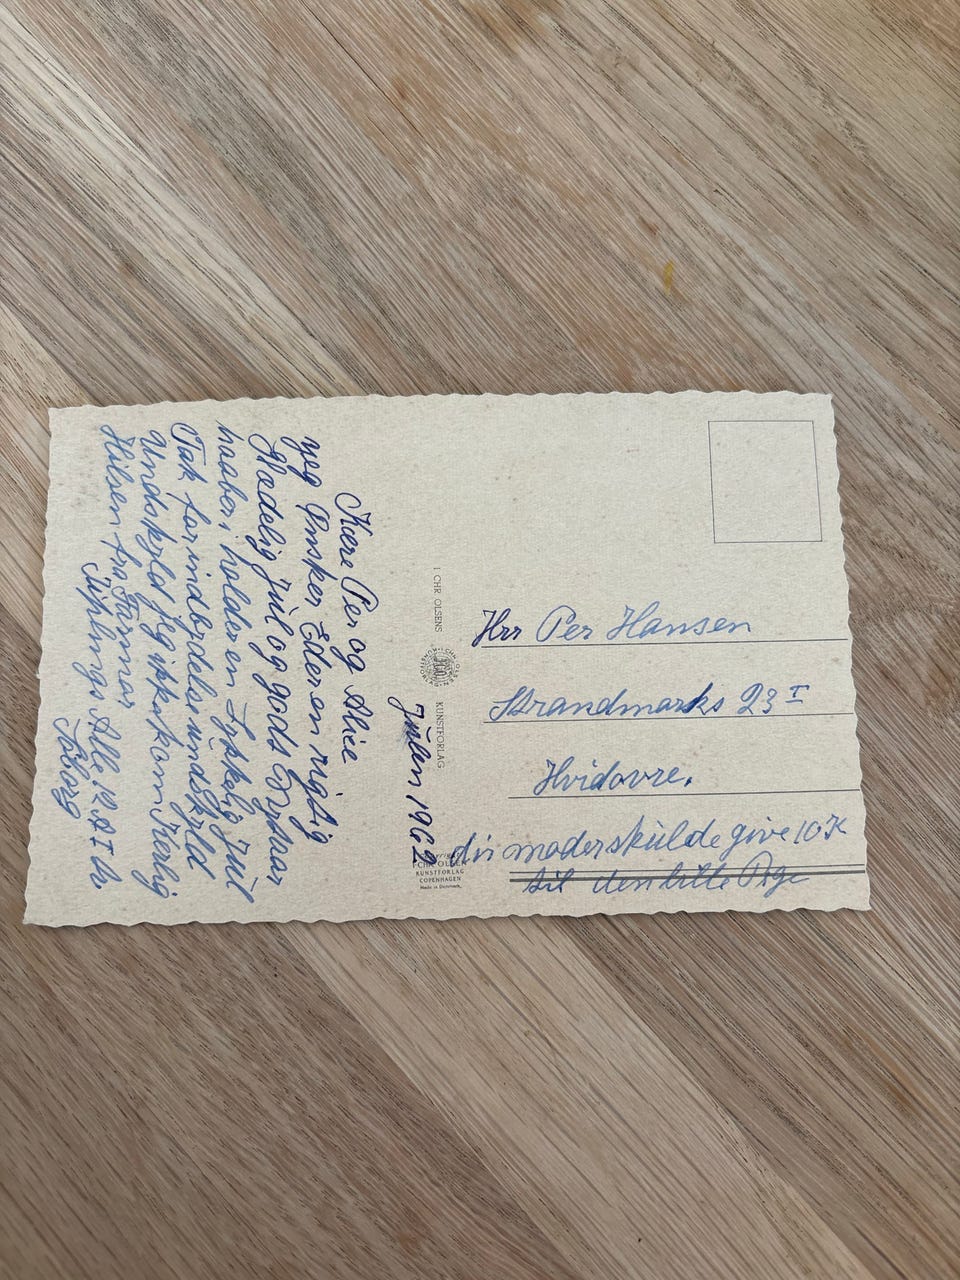 Julen 1962
Kære Per og Alice
jeg Ønsker Eder en rigtig
Glædelig Jul og godt Nytaar
haaber i holder en Lykkelig Jul
Tak for indbydelse undskyld
Undskyld jeg ikke kom Kerlig
Hilsen fra Farmor
Alle. 12 A I th.
Søborg
I CHR OLSENS KUNSTFORLAG
Hrr Per Hansen
Strandmarks 23 I
Hvidovre.
din moder skulde give 10 K
til den lille Pige
I CHR OLSEN
KUNSTFORLAG
COPENHAGEN
Made in Denmark.